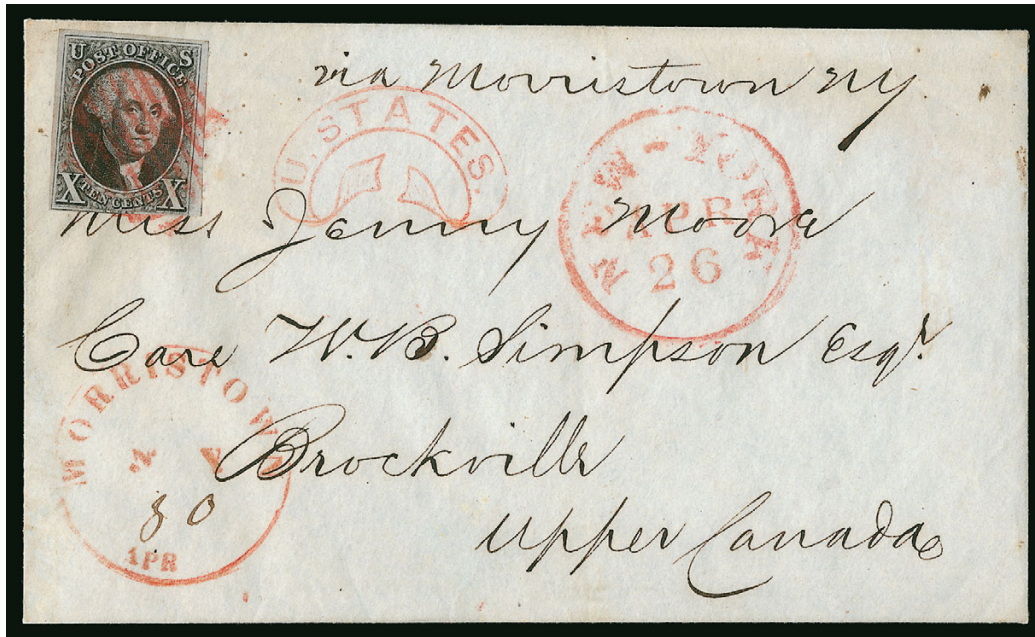 U S
POST OFFICE
X TEN CENTS X
via Morristown NY.
U. STATES.
NEW-YORK
APR
26
Miss Jenny Moore
Care W.B. Simpson Esqr.
Brockville
Upper Canada
MORRISTOWN
N Y
30
APR